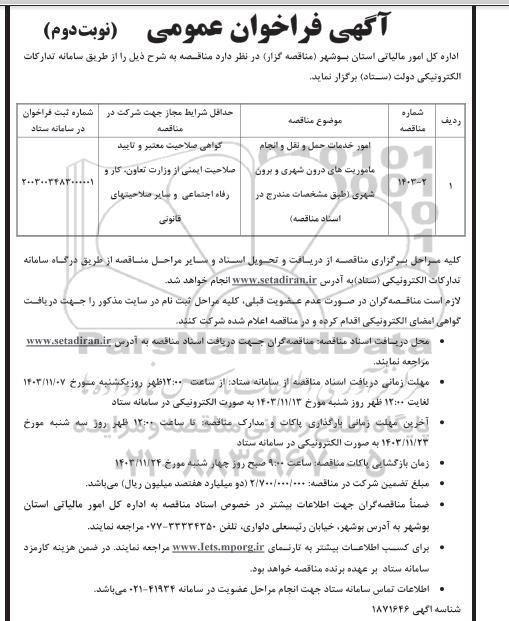 آگهی فراخوان عمومی (نوبت دوم)
اداره کل امور مالیاتی استان بوشهر (مناقصه گزار) در نظر دارد مناقصه به شرح ذیل را از طریق سامانه تدارکات
الکترونیکی دولت (ستاد) برگزار نماید.
ردیف
شماره مناقصه
موضوع مناقصه
حداقل شرایط مجاز جهت شرکت در مناقصه
شماره ثبت فراخوان در سامانه ستاد
۱
۱۴۰۳-۲
امور خدمات حمل و نقل و انجام
ماموریت های درون شهری و برون
شهری (طبق مشخصات مندرج در
اسناد مناقصه)
گواهی صلاحیت معتبر و تایید
صلاحیت ایمنی از وزارت تعاون، کار و
رفاه اجتماعی و سایر صلاحیتهای
قانونی
۲۰۰۳۰۰۳۴۸۳۰۰۰۰۰۱
کلیه مراحل برگزاری مناقصه از دریافت و تحویل اسناد و سایر مراحل مناقصه از طریق درگاه سامانه
تدارکات الکترونیکی (ستاد)به آدرس www.setadiran.ir انجام خواهد شد.
لازم است مناقصه‌گران در صورت عدم عضویت قبلی، کلیه مراحل ثبت نام در سایت مذکور را جهت دریافت
گواهی امضای الکترونیکی اقدام کرده و در مناقصه اعلام شده شرکت کنند.
• محل دریافت اسناد مناقصه: مناقصه‌گران جهت دریافت اسناد مناقصه به آدرس www.setadiran.ir
مراجعه نمایند.
• مهلت زمانی دریافت اسناد مناقصه از سامانه ستاد: از ساعت ۱۲:۰۰ظهر روزیکشنبه مورخ ۱۴۰۳/۱۱/۰۷
لغایت ۱۲:۰۰ ظهر روز شنبه مورخ ۱۴۰۳/۱۱/۱۳ به صورت الکترونیکی در سامانه ستاد
• آخرین مهلت زمانی بارگذاری پاکات و مدارک مناقصه: تا ساعت ۱۲:۰۰ ظهر روز سه شنبه مورخ
۱۴۰۳/۱۱/۲۳ به صورت الکترونیکی در سامانه ستاد
• زمان بازگشایی پاکات مناقصه: ساعت ۹:۰۰ صبح روز چهار شنبه مورخ ۱۴۰۳/۱۱/۲۴
• مبلغ تضمین شرکت در مناقصه: ۲/۷۰۰/۰۰۰/۰۰۰ (دو میلیارد هفتصد میلیون ریال) می‌باشد.
• ضمناً مناقصه‌گران جهت اطلاعات بیشتر در خصوص اسناد مناقصه به اداره کل امور مالیاتی استان
بوشهر به آدرس بوشهر، خیابان رئیسعلی دلواری، تلفن ۳۳۳۳۴۳۵۰-۰۷۷ مراجعه نمایند.
• برای کسب اطلاعات بیشتر به تارنمای www.Iets.mporg.ir مراجعه نمایند. در ضمن هزینه کارمزد
سامانه ستاد بر عهده برنده مناقصه خواهد بود.
• اطلاعات تماس سامانه ستاد جهت انجام مراحل عضویت در سامانه ۴۱۹۳۴-۰۲۱ می‌باشد.
شناسه اگهی ۱۸۷۱۶۴۶